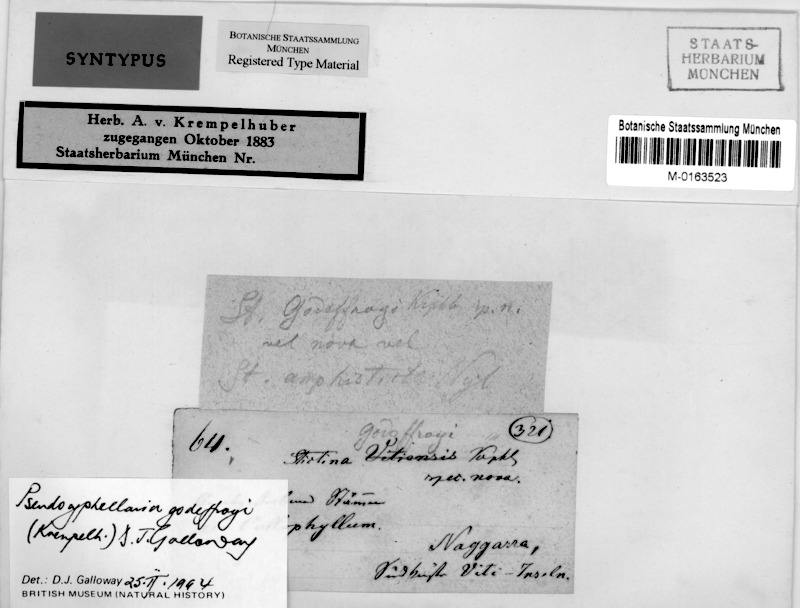 SYNTYPUS
BOTANISCHE STAATSSAMMLUNG
MÜNCHEN
Registered Type Material
STAATS-
HERBARIUM
MÜNCHEN
Herb. A. v. Krempelhuber
zugegangen Oktober 1883
Staatsherbarium München Nr.
Botanische Staatssammlung München
M-0163523
St. Godeffroyi Krplh sp. n.
vel nova vel
St. Nyl
godeffroyi
321
64.
Stictina Vitiensis Krphl
spec. nova.
Stämmen
phyllum.
Naggarra,
Südküste Viti-Inseln.
Pseudocyphellaria godeffroyi
(Krempelh.) D.J. Galloway
Det.: D.J. Galloway 25.II.1984
BRITISH MUSEUM (NATURAL HISTORY)